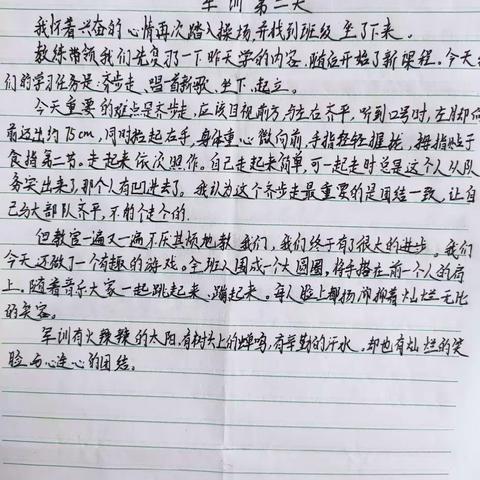 军训第二天
我怀着兴奋的心情再次踏入操场,并找到班级坐了下来。
教练带领我们先复习了一下昨天学的内容,随后开始了新课程。今天
们的学习任务是:齐步走、唱首新歌、坐下、起立。
今天重要的难点是齐步走,应该目视前方,与左右齐平,听到口号时,左脚向
前迈出约75cm,同时抬起右手,身体重心微向前,手指轻轻握拢,拇指贴于
食指第二节。走起来依次照作。自己走起来简单,可一起走时总是这个人从队
务突出来了,那个人有凹进去了。我认为这个齐步走最重要的是团结一致,让自
己与大部队齐平,不的个走个的.
但教官一遍又一遍不厌其烦地教我们,我们终于有了很大的进步。我们
今天还做了一个有趣的游戏。全班人围成一个大圆圈,将手搭在前一个人的肩
上。随着音乐大家一起跳起来、蹦起来。每人脸上都扬抑着灿烂无比
的笑容。
军训有火辣辣的太阳,有树头上的蝉鸣,有辛勤的汗水,却也有灿烂的笑
脸与心连心的团结。